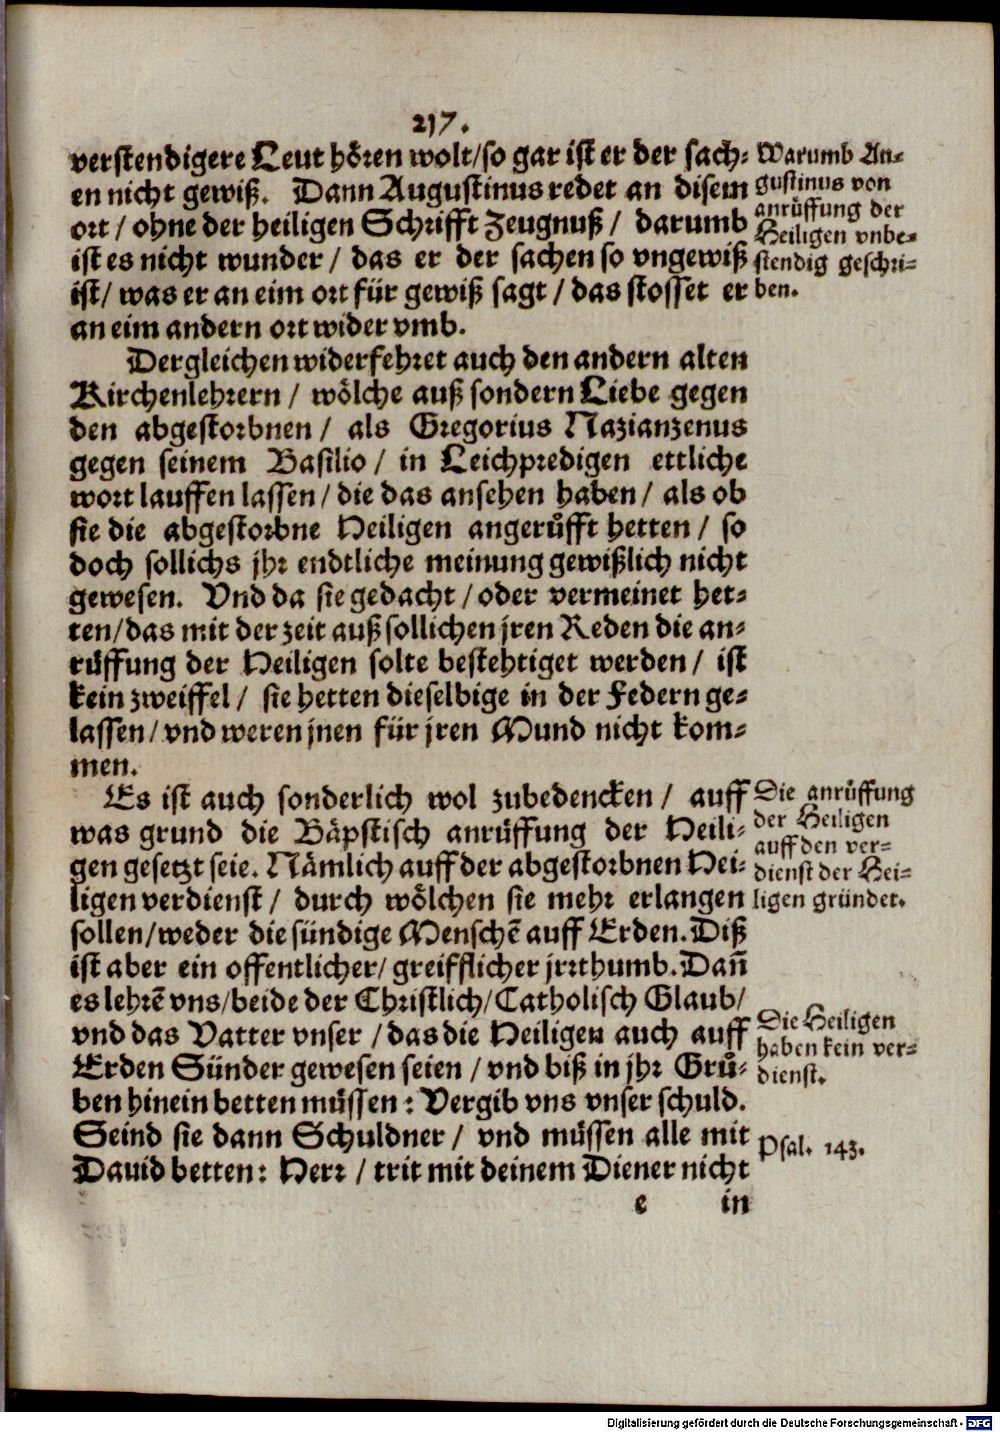 217.
verstendigere Leut hören wolt/so gar ist er der sach-
en nicht gewiß. Dann Augustinus redet an disem
ort / ohne der heiligen Schrifft Zeugnuß / darumb
ist es nicht wunder / das er der sachen so vngewiß
ist/ was er an eim ort für gewiß sagt / das stosset er
an eim andern ort wider vmb.
Warumb Au-
gustinus von
anrüffung der
Heiligen vnbe-
stendig geschri-
ben.
Dergleichen widerfehret auch den andern alten
Kirchenlehrern / wölche auß sondern Liebe gegen
den abgestorbnen / als Gregorius Nazianzenus
gegen seinem Basilio / in Leichpredigen ettliche
wort lauffen lassen / die das ansehen haben / als ob
sie die abgestorbne Heiligen angerůfft hetten / so
doch sollichs jhr endtliche meinung gewißlich nicht
gewesen. Vnd da sie gedacht / oder vermeinet het-
ten/das mit der zeit auß sollichen jren Reden die an-
rüffung der Heiligen solte bestehtiget werden / ist
kein zweiffel / sie hetten dieselbige in der Federn ge-
lassen / vnd weren jnen für jren Mund nicht kom-
men.
Es ist auch sonderlich wol zubedencken / auff
was grund die Bäpstisch anrüffung der Heili-
gen gesetzt seie. Nämlich auff der abgestorbnen Hei-
ligen verdienst / durch wölchen sie mehr erlangen
sollen/weder die sündige Menschē auff Erden. Diß
ist aber ein offentlicher/ greifflicher jrrthumb. Dañ
es lehrē vns/beide der Christlich/Catholisch Glaub/
vnd das Vatter vnser / das die Heiligen auch auff
Erden Sünder gewesen seien / vnd biß in jhr Grů-
ben hinein betten müssen : Vergib vns vnser schuld.
Seind sie dann Schuldner / vnd müssen alle mit
Dauid betten: Herr / trit mit deinem Diener nicht
Die anrüffung
der Heiligen
auff den ver-
dienst der Hei-
ligen gründet.
Die Heiligen
haben kein ver-
dienst.
Psal. 143.
e in
Digitalisierung gefördert durch die Deutsche Forschungsgemeinschaft - DFG